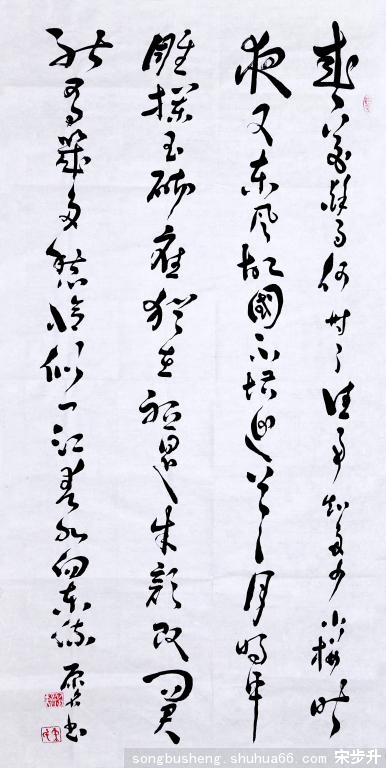 春花秋月何時了往事知多少小樓昨
夜又東風故國不堪迴首月明中
雕欄玉砌應猶在祇是朱顏改問君
能有幾多愁恰似一江春水向東流
書
songbusheng.shuhua66.com 宋步升